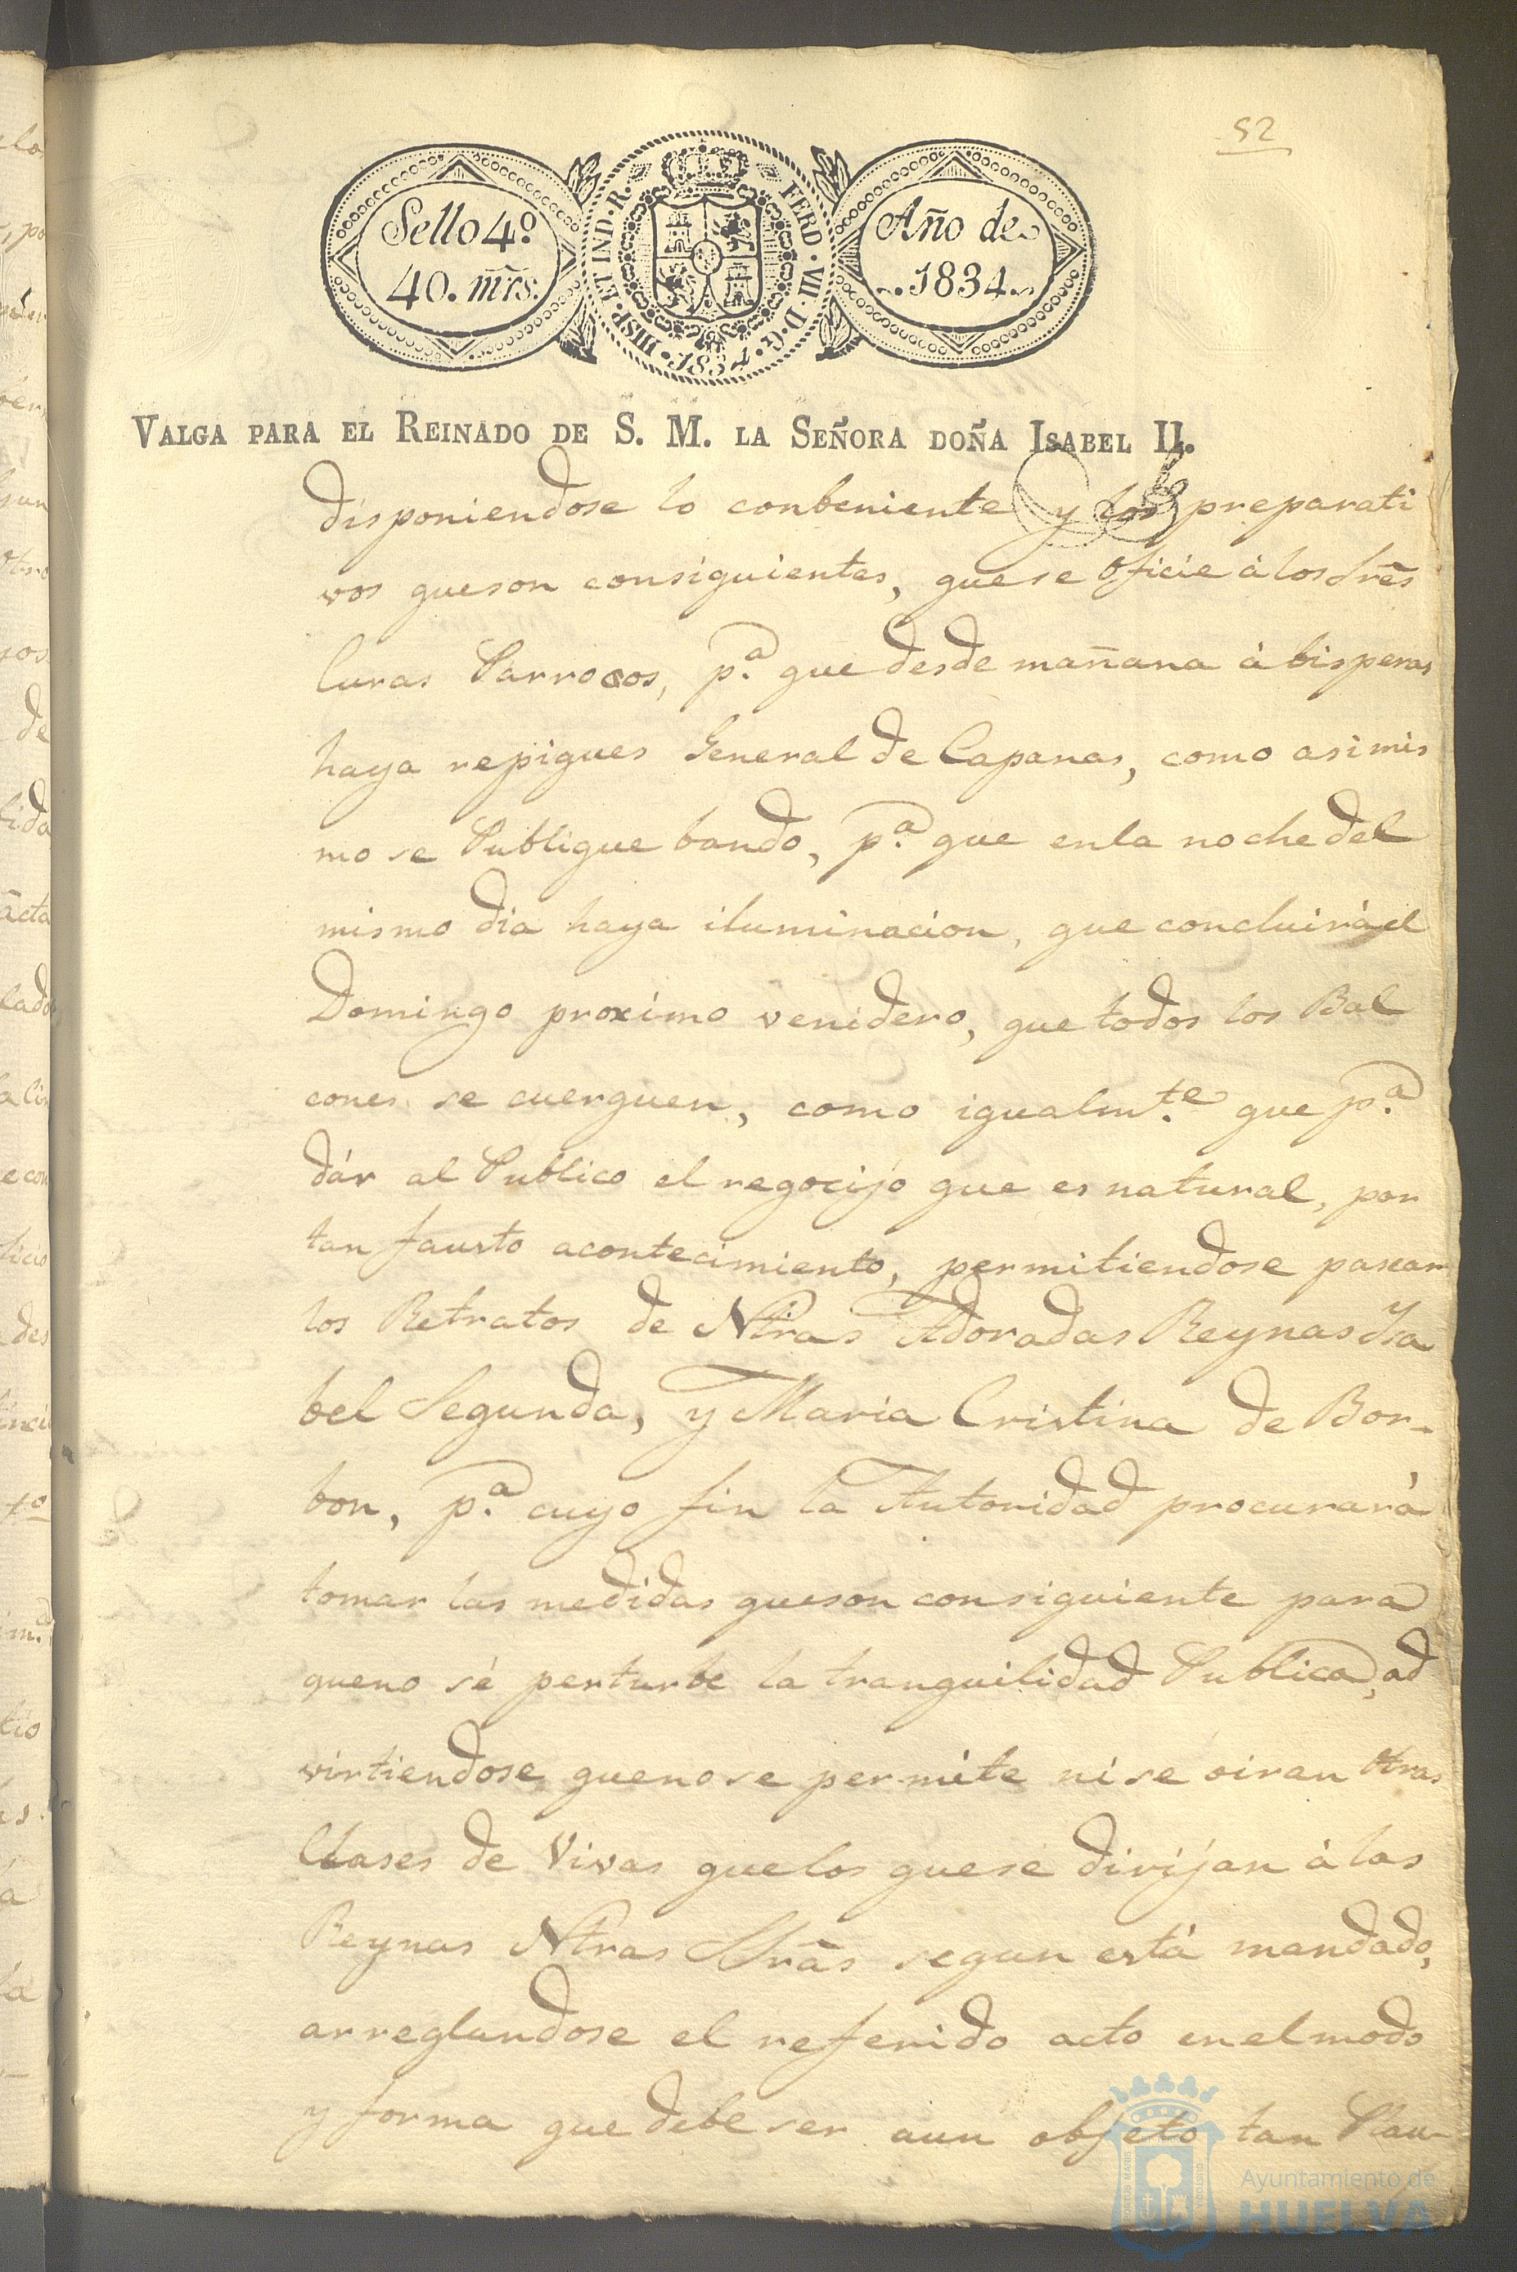 52
Sello 4º
40. mrs.
HISP · ET IND · R. FERD · VII · D · G · 1834
Año de
1834
VALGA PARA EL REINADO DE S. M. LA SEÑORA DOÑA ISABEL II.
disponiendose lo conbeniente y los preparati
vos que son consiguientes, que se oficie à los Sres
Curas Parrocos, p.ª que desde mañana à bisperas
haya repiques General de Capanas, como asimis
mo se Publique bando, p.ª que en la noche del
mismo dia haya iluminacion, que concluirá el
Domingo proximo venidero, que todos los Bal
cones se cuerguen, como igualm.te que p.ª
dár al Publico el regocijo que es natural, por
tan fausto acontecimiento, permitiendose pasear
los Retratos de Ntras Adoradas Reynas Isa
bel Segunda, y Maria Cristina de Bor-
bon, p.ª cuyo fin la Autoridad procurará
tomar las medidas que son consiguiente para
que no sé perturbe la tranquilidad Publica, ad
virtiendose que no se permite ni se oiran otras
Clases de Vivas que los que se dirijan à las
Reynas Ntras Sras segun está mandado,
arreglandose el referido acto en el modo
y forma que debe ser aun objeto tan Plau-
Ayuntamiento de
HUELVA